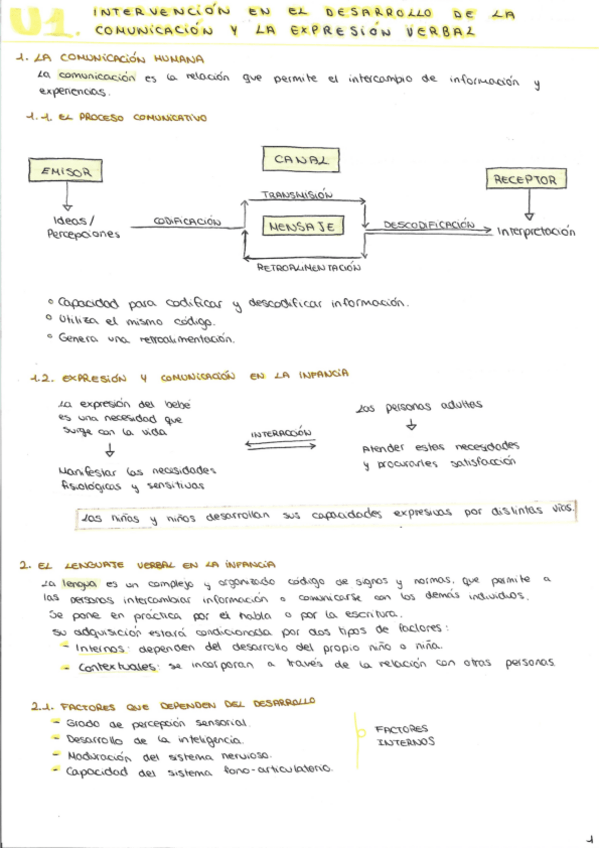 U1. INTERVENCIÓN EN EL DESARROLLO DE LA
COMUNICACIÓN Y LA EXPRESIÓN VERBAL
1. LA COMUNICACIÓN HUMANA
La comunicación es la relación que permite el intercambio de información y
experiencias.
1.1. EL PROCESO COMUNICATIVO
CANAL
EMISOR
RECEPTOR
TRANSMISIÓN
Ideas/
Percepciones
CODIFICACIÓN
MENSAJE
DESCODIFICACIÓN
Interpretación
RETROALIMENTACIÓN
Capacidad para codificar y descodificar información.
Utiliza el mismo código.
Genera una retroalimentación.
1.2. EXPRESIÓN Y COMUNICACIÓN EN LA INFANCIA
La expresión del bebé
es una necesidad que
surge con la vida
Manifestar las necesidades
fisiológicas y sensitivas
INTERACCIÓN
Las personas adultas
Atender estas necesidades
y procurarles satisfacción
Las niñas y niños desarrollan sus capacidades expresivas por distintas vías.
2. EL LENGUAJE VERBAL EN LA INFANCIA
La lengua es un complejo y organizado código de signos y normas, que permite a
las personas intercambiar información o comunicarse con los demás individuos.
Se pone en práctica por el habla o por la escritura.
Su adquisición estará condicionada por dos tipos de factores:
- Internos: dependen del desarrollo del propio niño o niña.
- Contextuales: se incorporan a través de la relación con otras personas
2.1. FACTORES QUE DEPENDEN DEL DESARROLLO
- Grado de percepción sensorial.
- Desarrollo de la inteligencia.
- Maduración del sistema nervioso.
- Capacidad del sistema fono-articulatorio.
FACTORES
INTERNOS
1